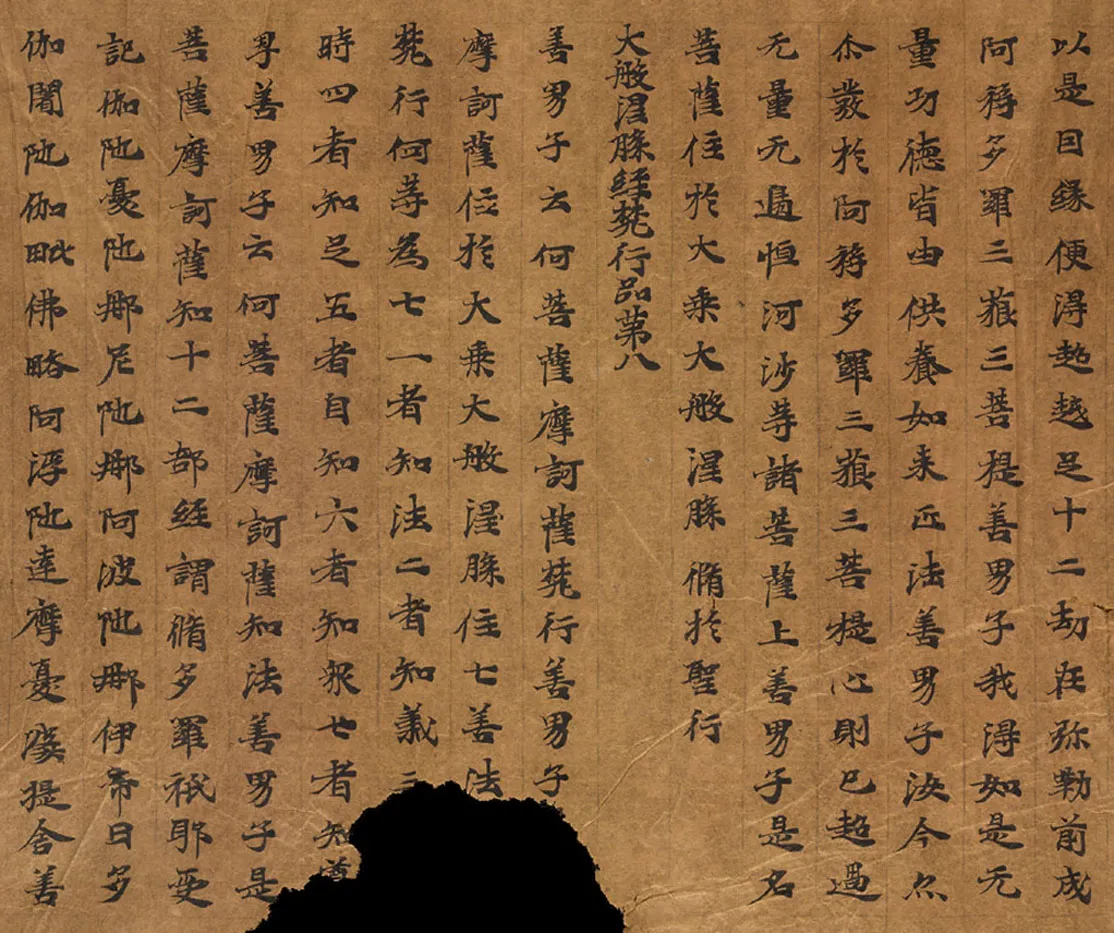 以是因縁便得超越足十二劫在弥勒前成
阿耨多羅三藐三菩提善男子我得如是无
量功德皆由供養如来正法善男子汝今亦
尒發於阿耨多羅三藐三菩提心則已超過
无量无邊恒河沙等諸菩薩上善男子是名
菩薩住於大乘大般涅槃脩於聖行
大般涅槃經梵行品第八
善男子云何菩薩摩訶薩梵行善男子
摩訶薩住於大乘大般涅槃住七善法
梵行何等為七一者知法二者知義三
時四者知足五者自知六者知衆七者知尊
卑善男子云何菩薩摩訶薩知法善男子是
菩薩摩訶薩知十二部經謂脩多羅祇耶受
記伽陁憂陁那尼陁那阿波陁那伊帝曰多
伽闍陁伽毗佛略阿浮陁達摩憂波提舍善